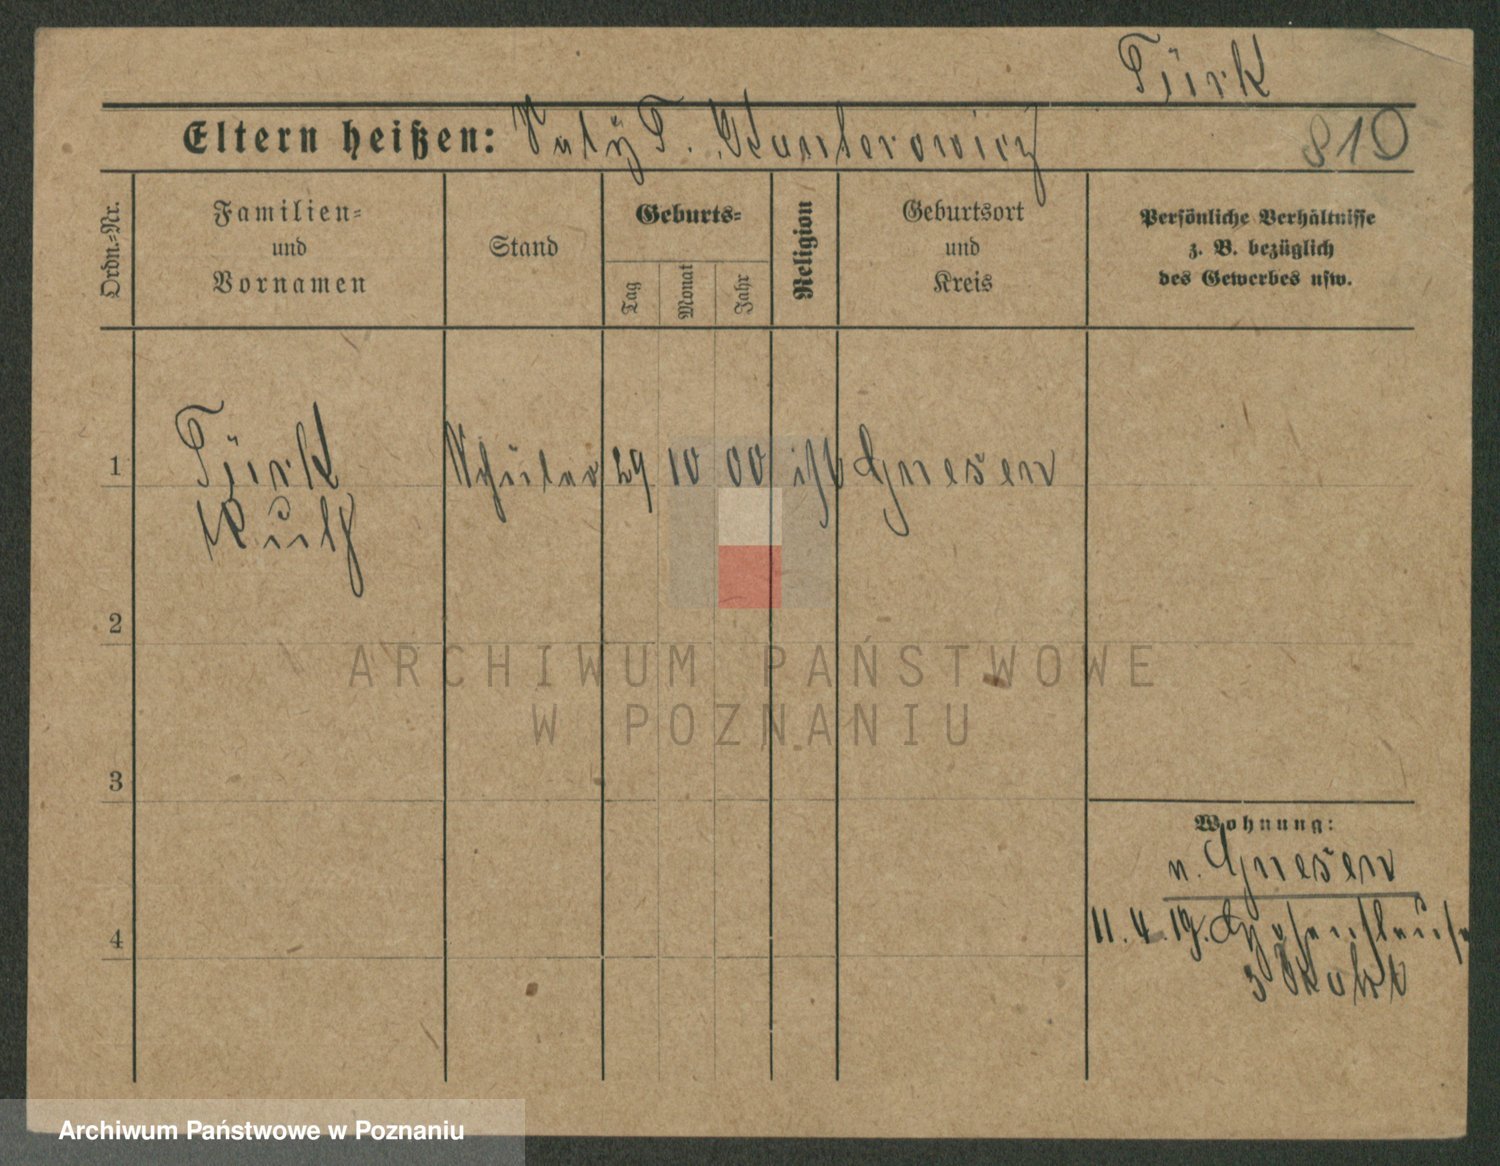 Türk
Eltern heißen: T. Kantorowicz
810
Ordn.-Nr.
Familien-
und
Vornamen
Stand
Geburts-
Tag
Monat
Jahr
Religion
Geburtsort
und
Kreis
Persönliche Verhältnisse
z. B. bezüglich
des Gewerbes usw.
1
Türk
Schüler 29 10 00 isr Gnesen
2
3
4
Wohnung:
n. Gnesen
11. 4. 19.
3
ARCHIWUM PAŃSTWOWE
W POZNANIU
Archiwum Państwowe w Poznaniu